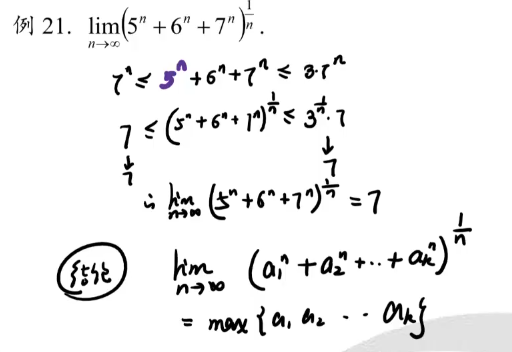 例 21. lim_{n→∞}(5ⁿ + 6ⁿ + 7ⁿ)^{1/n}.
7ⁿ ≤ 5ⁿ + 6ⁿ + 7ⁿ ≤ 3·7ⁿ
7 ≤ (5ⁿ + 6ⁿ + 7ⁿ)^{1/n} ≤ 3^{1/n}·7
↓ ↓
7 7
∴ lim_{n→∞} (5ⁿ + 6ⁿ + 7ⁿ)^{1/n} = 7
结论 lim_{n→∞} (a₁ⁿ + a₂ⁿ + ·· + aₖⁿ)^{1/n}
= max {a₁ a₂ ·· aₖ}